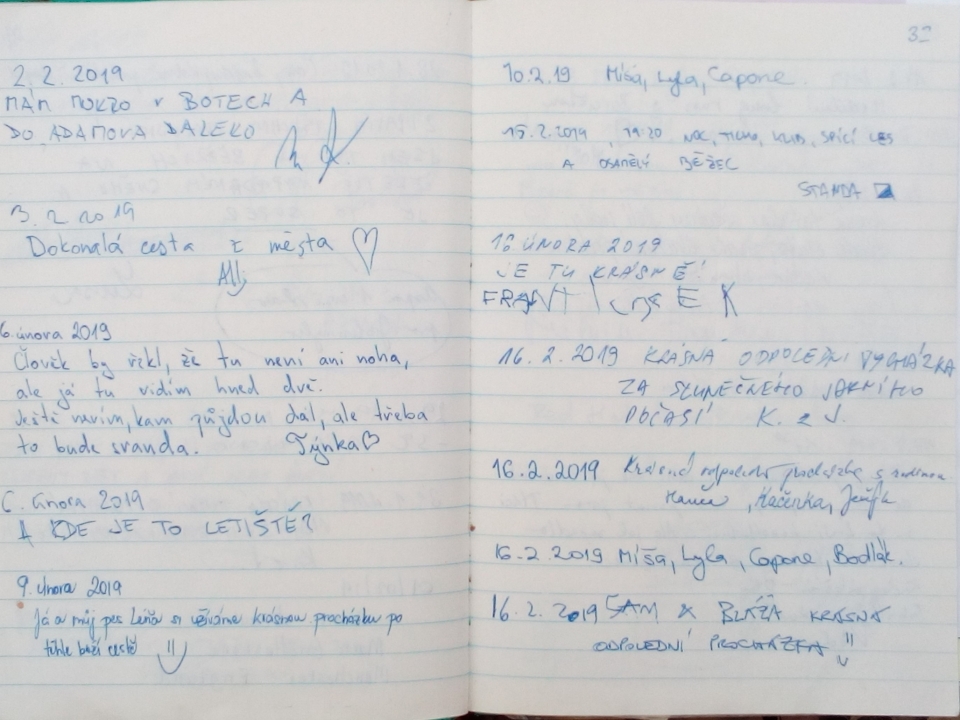 2.2.2019
MÁM MOKRO V BOTECH A
DO ADAMOVA DALEKO
3.2.2019
Dokonalá cesta z města ♡
Ally
6. února 2019
Člověk by řekl, že tu není ani noha,
ale já tu vidím hned dvě.
Ještě nevím, kam půjdou dál, ale třeba
to bude sranda. Týnka♡
6. února 2019
A KDE JE TO LETIŠTĚ?
9. února 2019
Já a můj pes Leňa si užíváme krásnou procházku po
téhle boží cestě
32
10.2.19 Míša, Lyla, Capone.
15.2.2019 19:20 NOC, TICHO, KLID, SPÍCÍ LES
A OSAMĚLÝ BĚŽEC
STANDA
16 ÚNORA 2019
JE TU KRÁSNĚ!
FRANTIŠEK
16.2.2019 KRÁSNÁ ODPOLEDNÍ VYCHÁZKA
ZA SLUNEČNÉHO JARNÍHO
POČASÍ K. a J.
16.2.2019 Krásná odpolední procházka s rodinou
Hanka, Kačenka, Jeňík
16.2.2019 Míša, Lyla, Capone, Bodlák.
16.2.2019 SAM & BLÁŽA KRÁSNÁ
ODPOLEDNÍ PROCHÁZKA !!